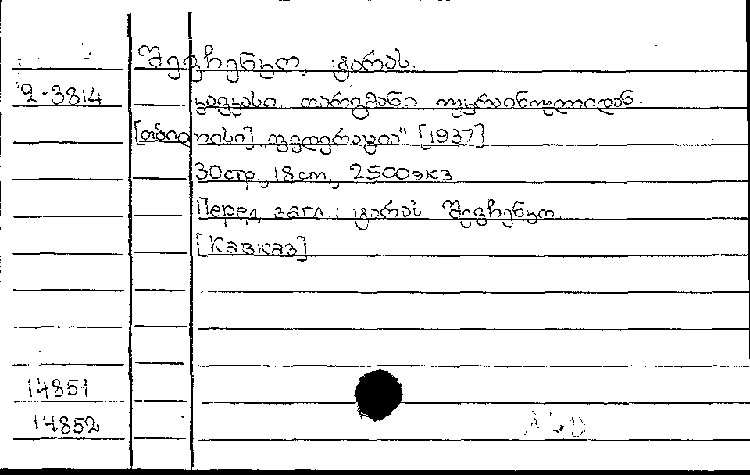 შევჩენკო, ტარას.
2-3814
კავკასი. თარგმანი უკრაინულიდან.
[თბილისი], ფედერაცია" [1937]
30стр, 18cm, 2500экз
Перед загл: ტარას შევჩენკო
[Кавказ]
14851
14852